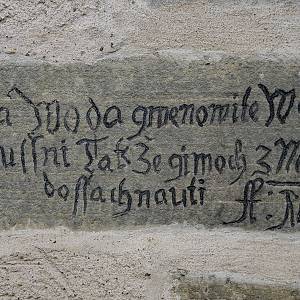 a Wo da gmenowite W
ussni Tak Že gimoch z M
dossachnauti ff: